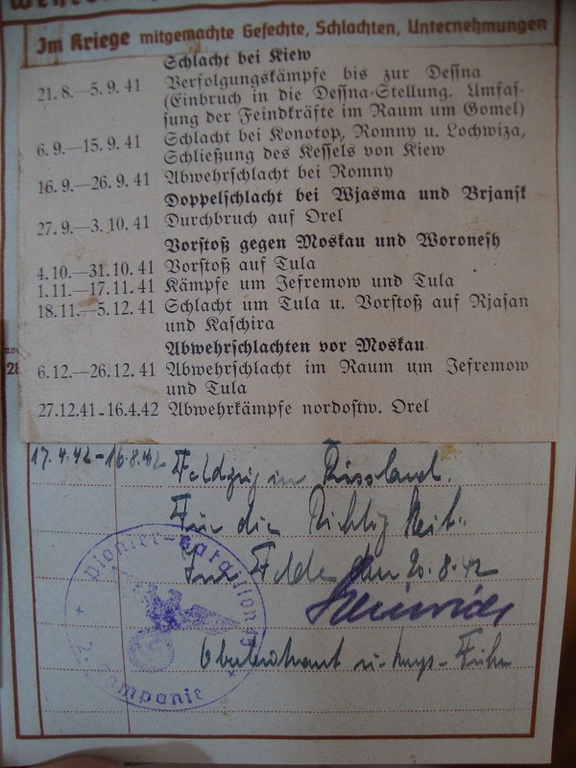 Im Kriege mitgemachte Gefechte, Schlachten, Unternehmungen
Schlacht bei Kiew
21.8.—5.9.41 Verfolgungskämpfe bis zur Deſſna
(Einbruch in die Deſſna-Stellung. Umfaſ-
ſung der Feindkräfte im Raum um Gomel)
6.9.—15.9.41 Schlacht bei Konotop, Romny u. Lochwiza,
Schließung des Keſſels von Kiew
16.9.—26.9.41 Abwehrſchlacht bei Romny
Doppelſchlacht bei Wjasma und Brjanſk
27.9.—3.10.41 Durchbruch auf Orel
Vorſtoß gegen Moskau und Woroneſh
4.10.—31.10.41 Vorſtoß auf Tula
1.11.—17.11.41 Kämpfe um Jefremow und Tula
18.11.—5.12.41 Schlacht um Tula u. Vorſtoß auf Rjaſan
und Kaſchira
Abwehrſchlachten vor Moskau
6.12.—26.12.41 Abwehrſchlacht im Raum um Jefremow
und Tula
27.12.41-16.4.42 Abwehrkämpfe nordoſtw. Orel
17.4.42-16.8.42 Feldzug in Russland.
Für die Richtigkeit:
Im Felde den 20.8.42
Oberleutnant u. Komp.-Führ
Pionier-Bataillon
2. Kompanie